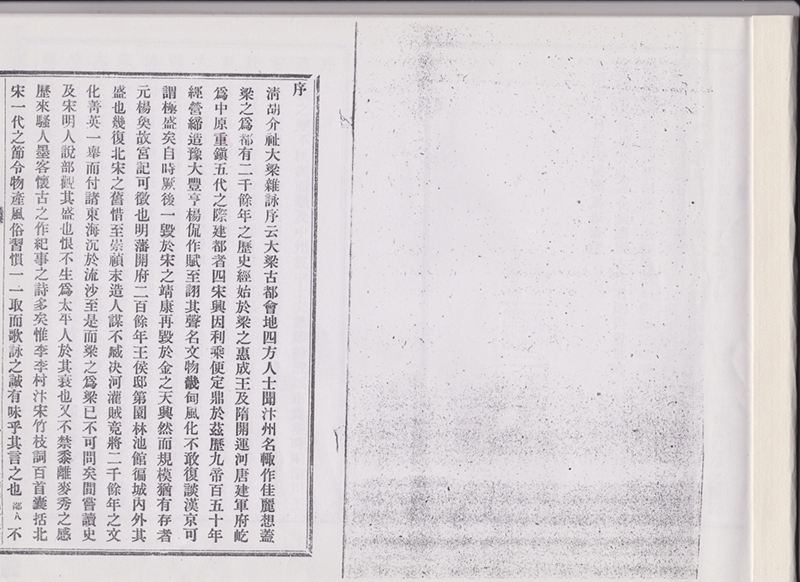 序
淸胡介祉大梁雜詠序云大梁古都會地四方人士聞汴州名輙作佳麗想蓋
梁之爲都有二千餘年之歷史經始於梁之惠成王及隋開運河唐建軍府屹
爲中原重鎭五代之際建都者四宋興因利乘便定鼎於茲歷九帝百五十年
經營締造豫大豐亨楊侃作賦至詡其聲名文物畿甸風化不敢復談漢京可
謂極盛矣自時厥後一毀於宋之靖康再毀於金之天興然而規模猶有存者
元楊奐故宮記可徵也明藩開府二百餘年王侯邸第園林池館徧城內外其
盛也幾復北宋之舊惜至崇禎末造人謀不臧决河灌賊竟將二千餘年之文
化菁英一舉而付諸東海沉於流沙至是而梁之爲梁已不可問矣間嘗讀史
及宋明人說部觀其盛也恨不生爲太平人於其衰也又不禁黍離麥秀之感
歷來騷人墨客懷古之作紀事之詩多矣惟李李村汴宋竹枝詞百首囊括北
宋一代之節令物產風俗習慣一一取而歌詠之誠有味乎其言之也鄙人不